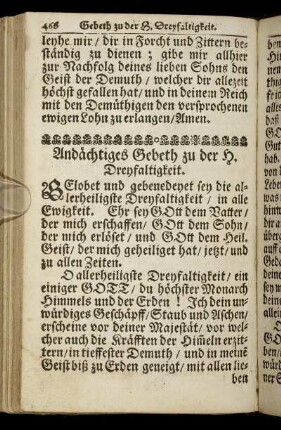 468 Gebeth zu der H. Dreyfaltigkeit.
leyhe mir / dir in Forcht und Zittern be-
ständig zu dienen ; gibe mir allhier
zur Nachfolg deines lieben Sohns den
Geist der Demuth / welcher dir allezeit
höchst gefallen hat / und in deinem Reich
mit den Demüthigen den versprochenen
ewigen Lohn zu erlangen / Amen.
Andächtiges Gebeth zu der H.
Dreyfaltigkeit.
GElobet und gebenedeyet sey die al-
lerheiligste Dreyfaltigkeit / in alle
Ewigkeit. Ehr sey GOtt dem Vatter /
der mich erschaffen / GOtt dem Sohn /
der mich erlöset / und GOtt dem Heil.
Geist / der mich geheiliget hat / jetzt / und
zu allen Zeiten.
O allerheiligste Dreyfaltigkeit / ein
einiger GOTT / du höchster Monarch
Himmels und der Erden ! Ich dein un-
würdiges Geschäpff / Staub und Aschen /
erscheine vor deiner Majestät / vor wel-
cher auch die Kräfften der Him̅eln erzit-
tern / in tieffester Demuth / und in meinē
Geist biß zu Erden geneigt / mit allen lie-
ben